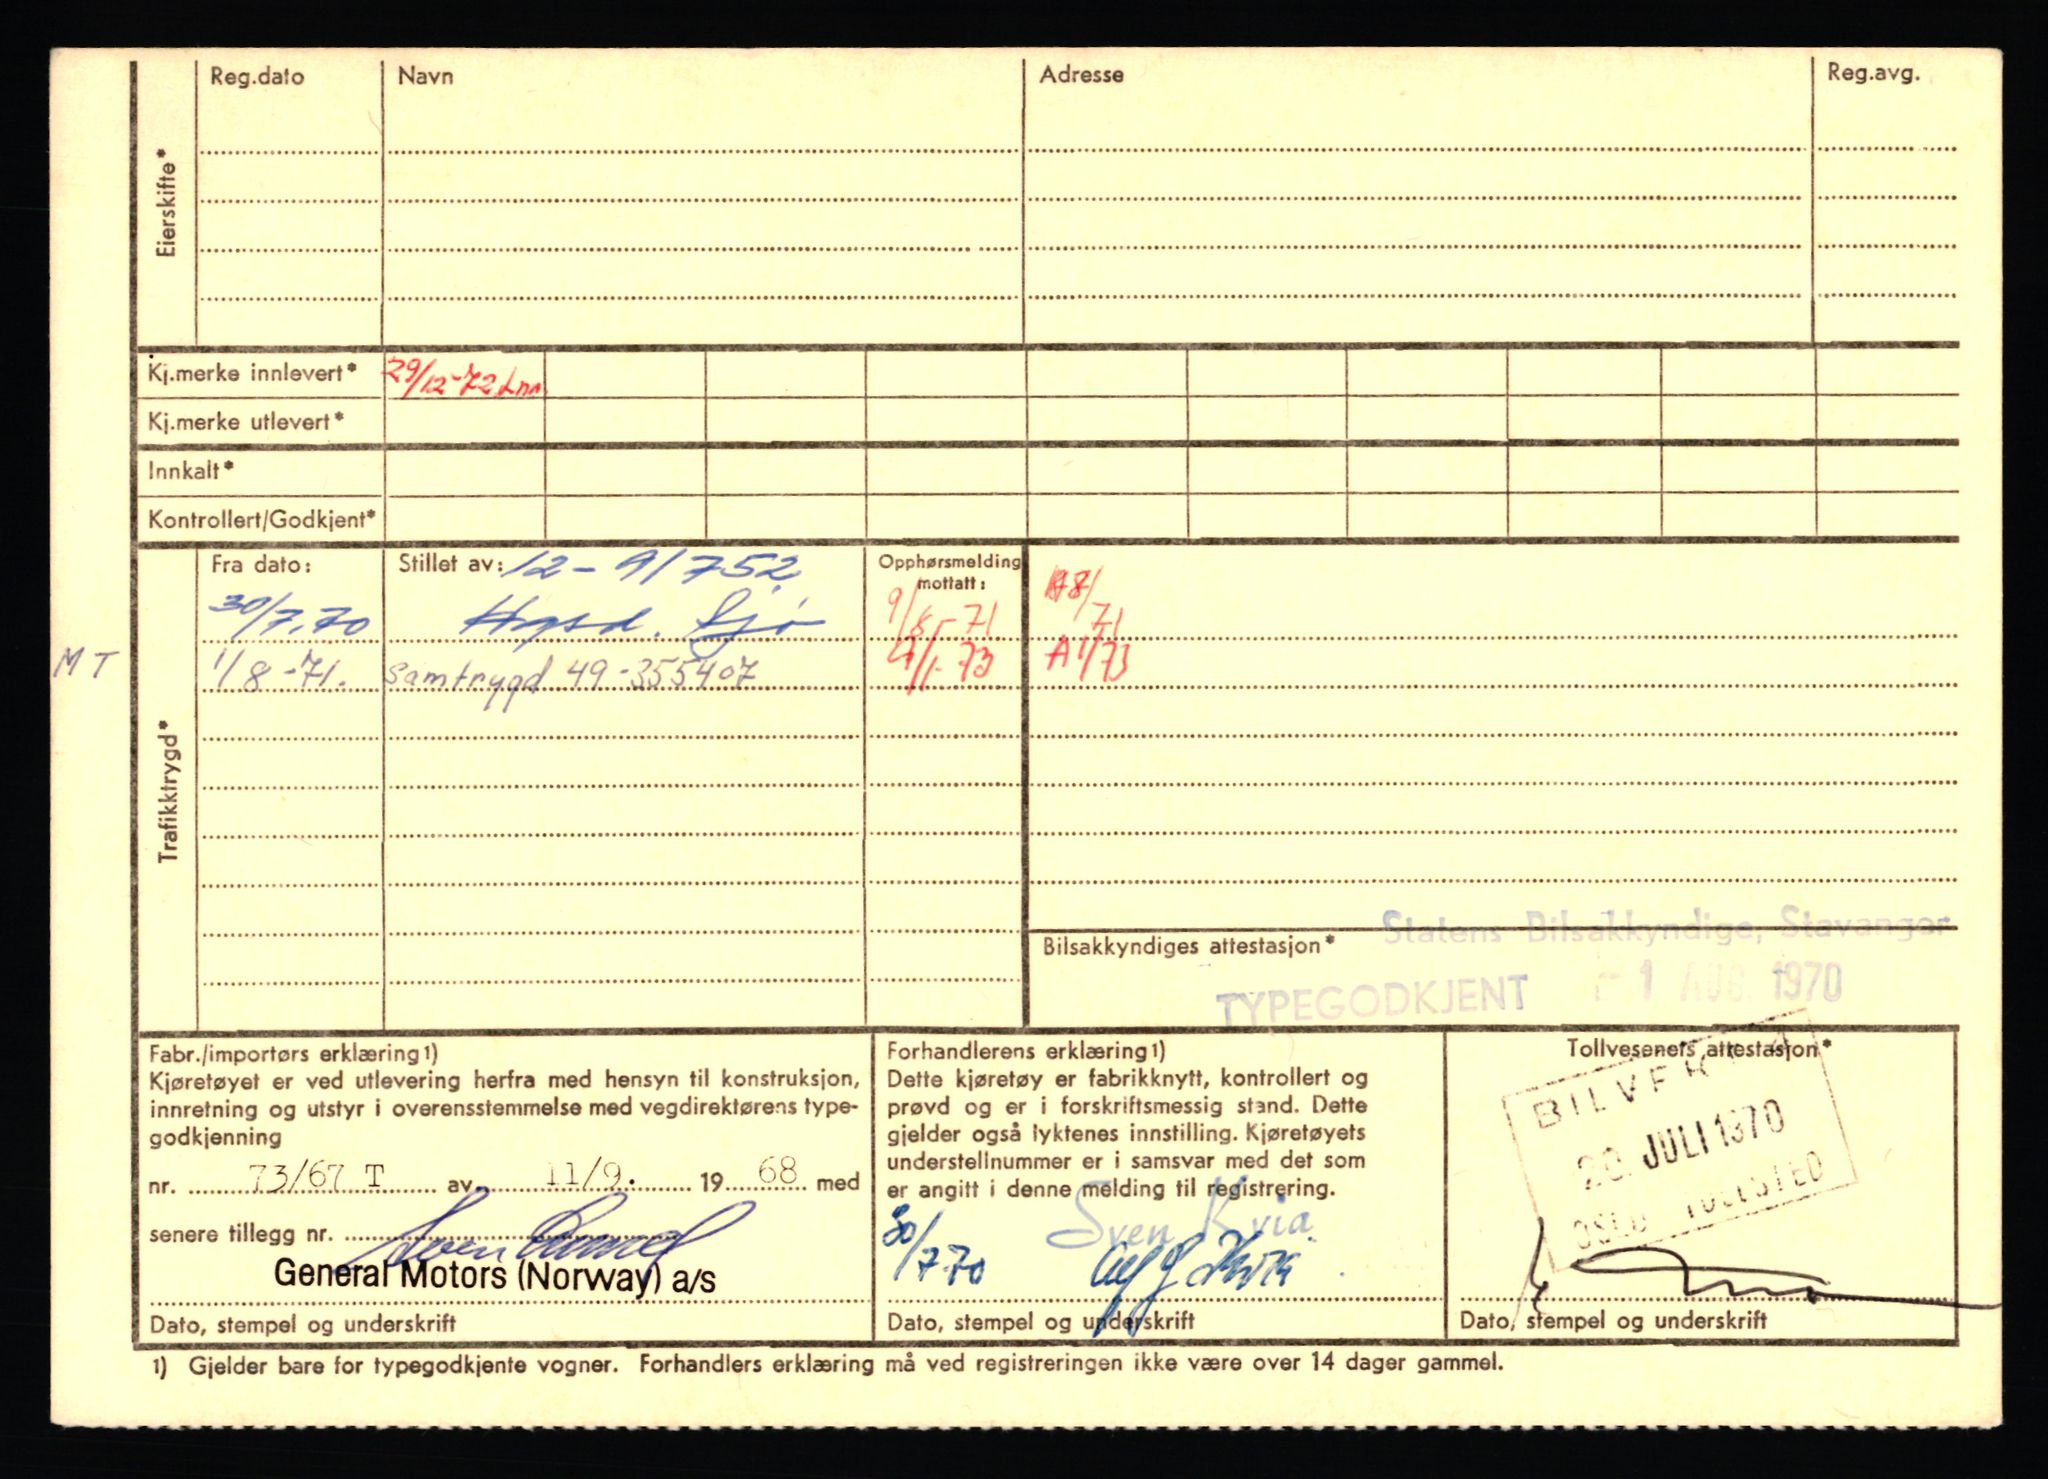 Reg.dato Navn Adresse Reg.avg.
Eierskifte*
Kj.merke innlevert* 29/12-72
Kj.merke utlevert*
Innkalt*
Kontrollert/Godkjent*
Trafikktrygd*
Fra dato: Stillet av: 12-91752 Opphørsmelding mottatt:
30/7.70 9/8-71 A8/71
MT 1/8-71. Samtrygd 49-355407 4/1-73 A1/73
Statens Bilsakkyndige, Stavanger
Bilsakkyndiges attestasjon*
TYPEGODKJENT - 1 AUG. 1970
Fabr./importørs erklæring1)
Kjøretøyet er ved utlevering herfra med hensyn til konstruksjon,
innretning og utstyr i overensstemmelse med vegdirektørens type-
godkjenning
nr. 73/67 T av 11/9. 1968 med
senere tillegg nr.
General Motors (Norway) a/s
Dato, stempel og underskrift
Forhandlerens erklæring1)
Dette kjøretøy er fabrikknytt, kontrollert og
prøvd og er i forskriftsmessig stand. Dette
gjelder også lyktenes innstilling. Kjøretøyets
understellnummer er i samsvar med det som
er angitt i denne melding til registrering.
Sven Kvia
30/7.70
Dato, stempel og underskrift
Tollvesenets attestasjon*
20. JULI 1970
OSLO TOLLSTED
Dato, stempel og underskrift
1) Gjelder bare for typegodkjente vogner. Forhandlers erklæring må ved registreringen ikke være over 14 dager gammel.